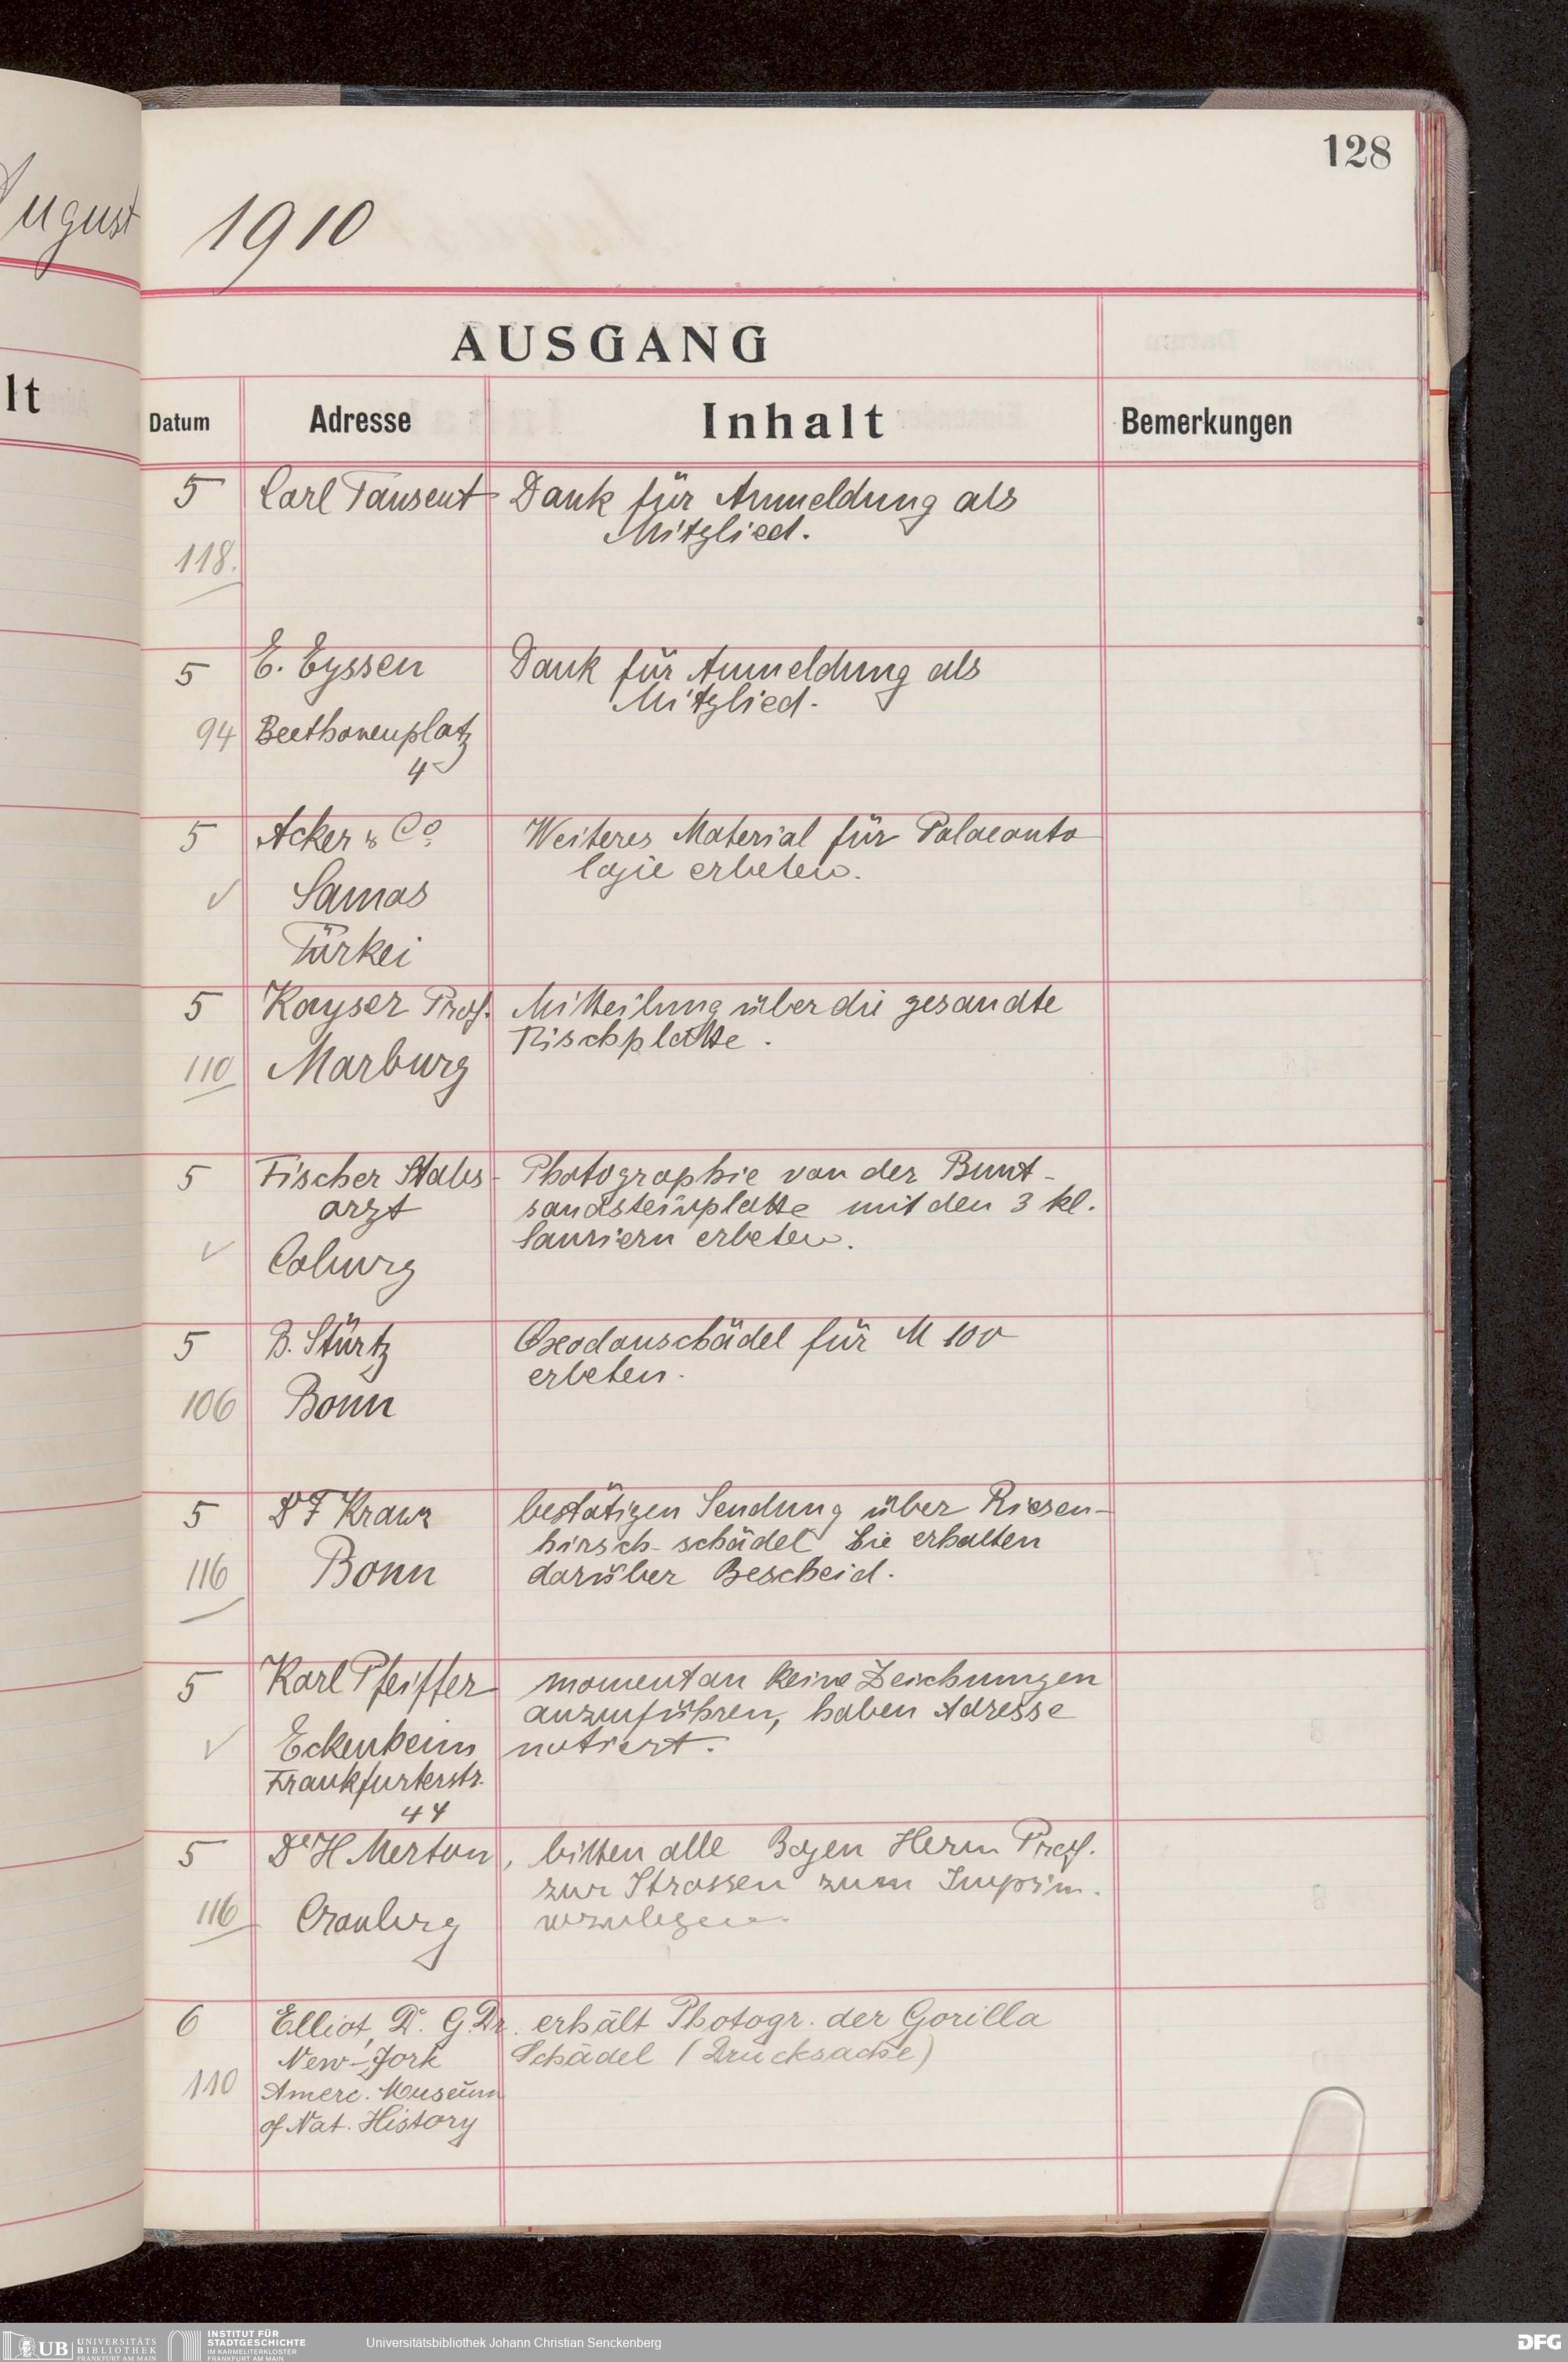 128
August
1910
AUSGANG
lt
Datum
Adresse
Inhalt
Bemerkungen
5
Carl Tausent
Dank für Anmeldung als
Mitglied.
118.
5
E. Eyssen
Dank für Anmeldung als
Mitglied.
94
Beethovenplatz
4
5
Acker & Co.
Weiteres Material für Palaeonto
logie erbeten.
✓
Samos
Türkei
5
Kayser Prof.
Mitteilung über die gesandte
Fischplatte.
110
Marburg
5
Fischer Stabs-
Photographie von der Bunt-
arzt
sandsteinplatte mit den 3 kl.
Sauriern erbeten.
✓
Coburg
5
B. Stürtz
schädel für M 100
erbeten.
106
Bonn
5
Dr F Kranz
bestätigen Sendung über Riesen-
hirsch-schädel Sie erhalten
darüber Bescheid.
116
Bonn
5
Karl Pfeiffer
momentan keine Zeichnungen
auszuführen, haben Adresse
notiert.
✓
Eckenheim
Frankfurterstr.
44
5
Dr H Merton,
bitten alle Bogen Herrn Prof.
zur Strassen zum Imprim.
vorzulegen.
116
Cronberg
6
Elliot, Dr. G. Dr.
erhält Photogr. der Gorilla
New-Jork
Schädel (Drucksache)
110
Amerc. Museum
of Nat. History
UB
UNIVERSITÄTS
BIBLIOTHEK
FRANKFURT AM MAIN
INSTITUT FÜR
STADTGESCHICHTE
IM KARMELITERKLOSTER
FRANKFURT AM MAIN
Universitätsbibliothek Johann Christian Senckenberg
DFG